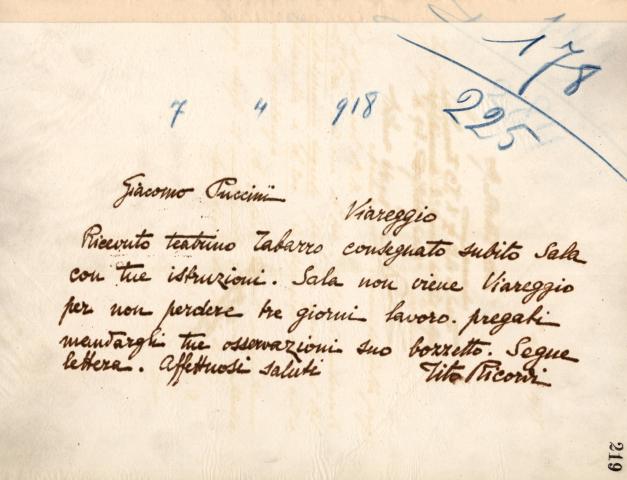 178
7 4 918 225
Giacomo Puccini
Viareggio
Ricevuto teatrino Tabarro consegnato subito Sala
con tue istruzioni. Sala non viene Viareggio
per non perdere tre giorni lavoro. pregabi
mandargli tue osservazioni suo bozzetto. Segue
lettera. Affettuosi saluti Tito Ricordi
219